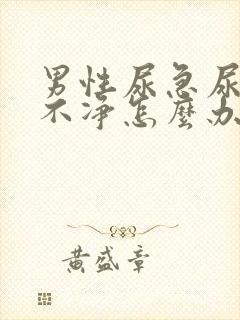 男性尿急尿
不净怎麽办
黄盛章